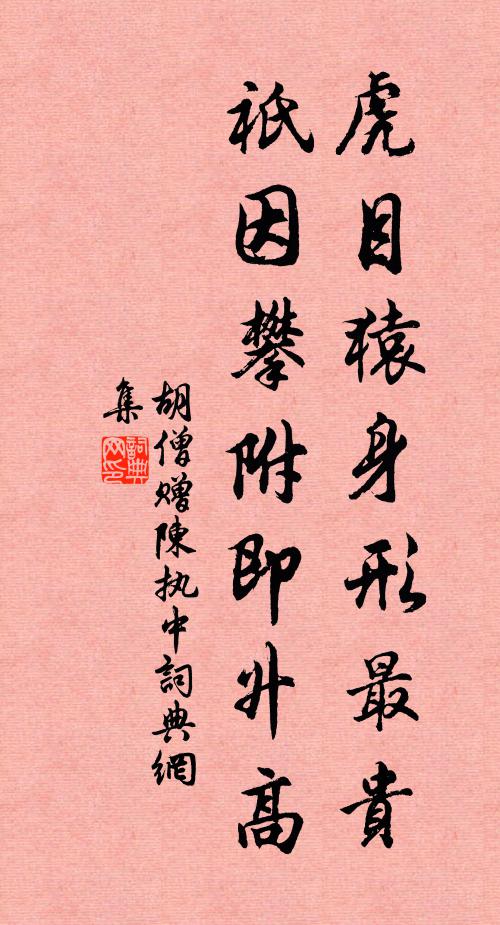 虎目猿身形最貴
祇因攀附即升高
胡僧贈陳执中詞典網
集
詞典
网印